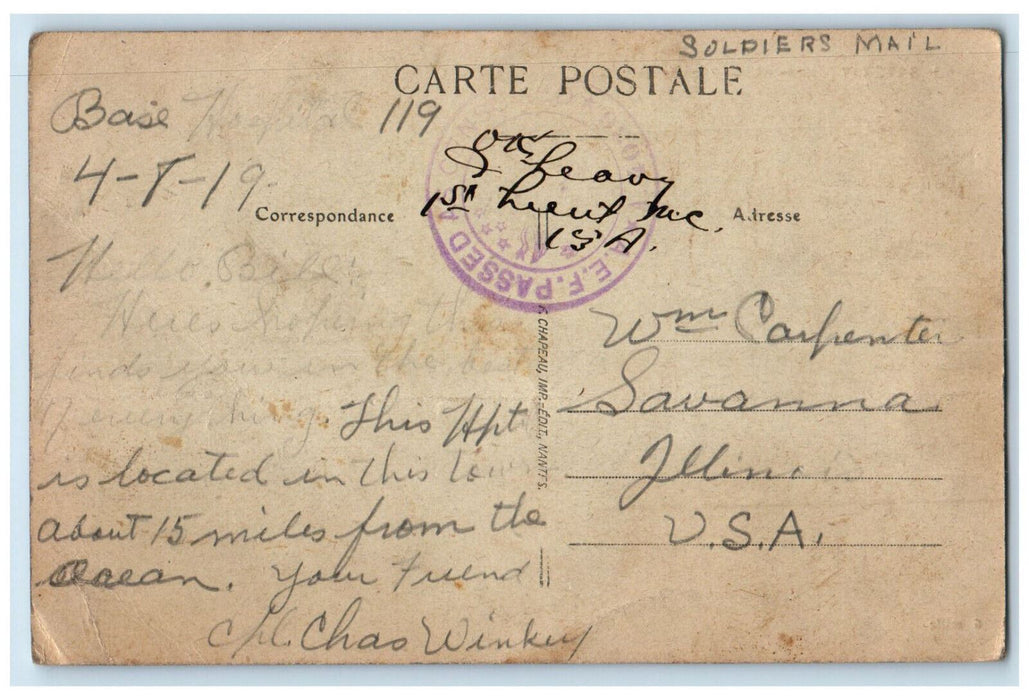 SOLDIERS MAIL
CARTE POSTALE
Base Hospital 119
4-8-19
Correspondance
OK
Leavy
1st Lieut MC.
USA.
Adresse
A.E.F. PASSED
Here's hoping this
finds you in the best
of everything. This Hpt
is located in this town
about 15 miles from the
Ocean. Your Friend
Chas Winkey
F. CHAPEAU, IMP.-ÉDIT., NANTES.
Wm Carpenter
Savanna
Illinois
U.S.A.